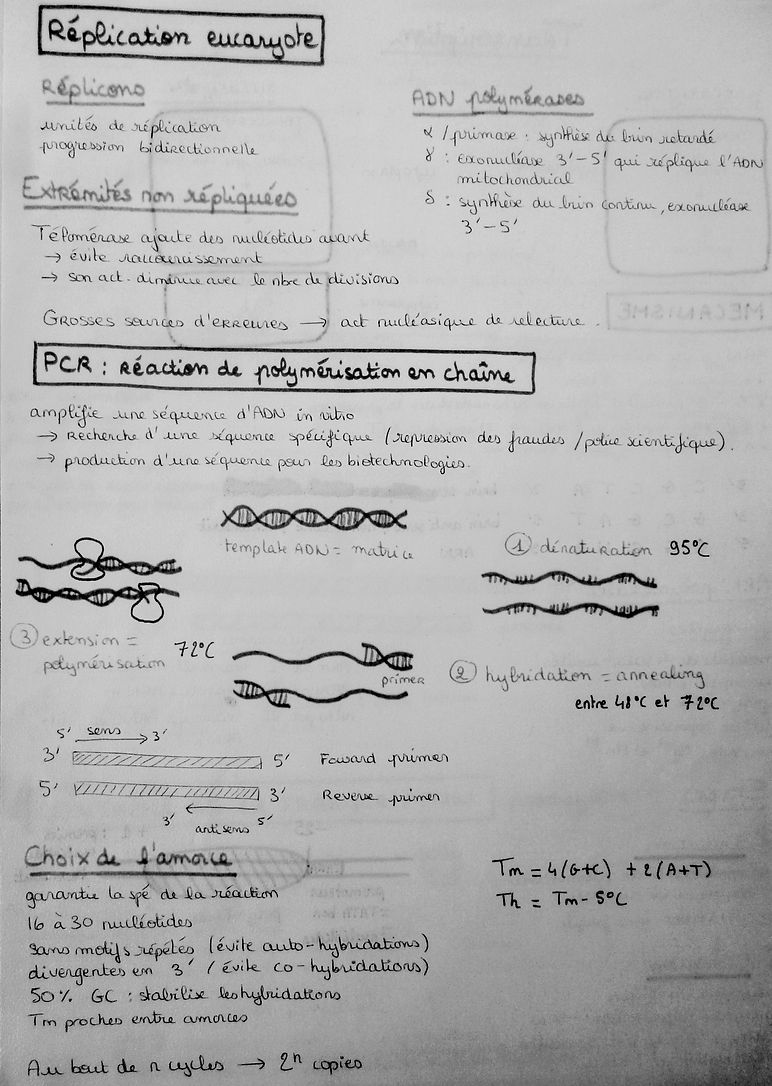 Réplication eucaryote
Réplicons
unités de réplication
progression bidirectionnelle
ADN polymérases
α / primase : synthèse du brin retardé
γ : exonucléase 3'-5' qui réplique l'ADN
mitochondrial
δ : synthèse du brin continu, exonucléase
3'-5'
Extrémités non répliquées
Télomérase ajoute des nucléotides avant
→ évite raccourcissement
→ son act. diminue avec le nbre de divisions
Grosses sources d'erreures → act nucléasique de relecture.
MECANISME
PCR : Réaction de polymérisation en chaîne
amplifie une séquence d'ADN in vitro
→ Recherche d'une séquence spécifique (repression des fraudes / police scientifique).
→ production d'une séquence pour les biotechnologies.
template ADN = matrice
① dénaturation 95°C
③ extension = 72°C
polymérisation
primer
② hybridation = annealing
entre 48°C et 72°C
5' sens 3'
3' 5' Foward primer
5' 3' Reverse primer
3' antisens 5'
Choix de l'amorce
garantie la spé de la réaction
16 à 30 nucléotides
sans motifs répétés (évite auto-hybridations)
divergentes en 3' (évite co-hybridations)
50% GC : stabilise les hybridations
Tm proches entre amorces
Tm = 4(G+C) + 2(A+T)
Th = Tm - 5°C
Au bout de n cycles → 2ⁿ copies